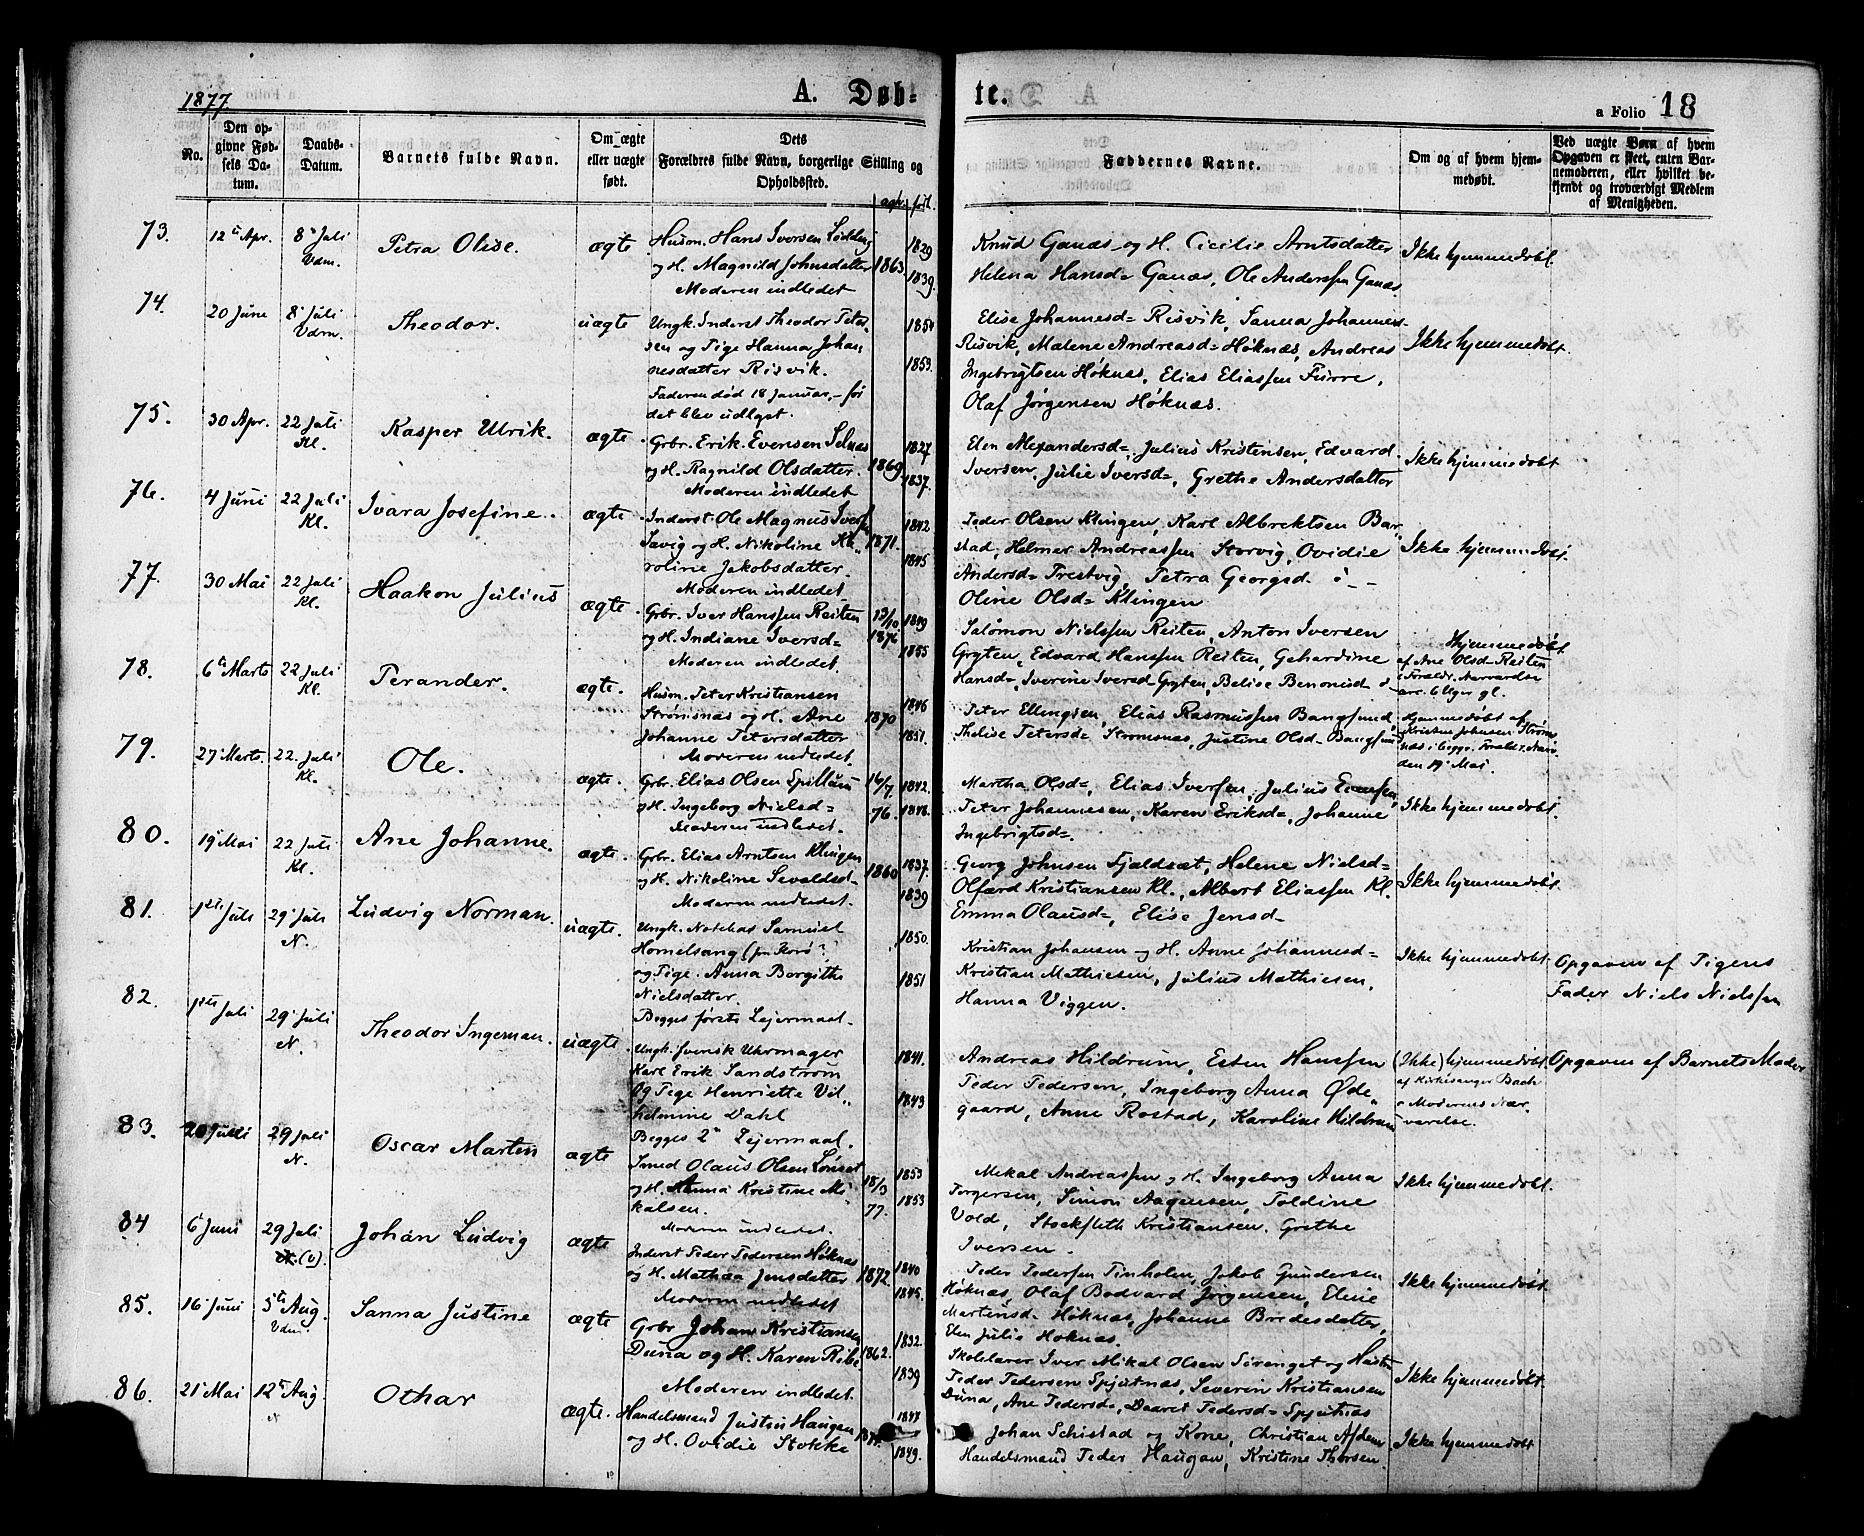 1877.
A. Døb-
te.
a Folio 18
No.
Den op-
givne Fød-
sels Da-
tum.
Daabs-
Datum.
Barnets fulde Navn.
Om ægte
eller uægte
født.
Dets
Forældres fulde Navn, borgerlige Stilling og
Opholdssted.
Faddernes Navne.
Om og af hvem hjem-
medøbt.
Ved uægte Børn af hvem
Opgaven er skeet, enten Bar-
nemoderen, eller hvilket be-
kjendt og troværdigt Medlem
af Menigheden.
73.
12te Apr.
8de Juli
Vdm.
Petra Olise.
ægte
Husm. Hans Iversen Lødding
og H. Magnild Johnsdatter
Moderen indledet
1863
1829
1839.
Knud Ganæs og H. Cicilie Arntsdatter
Helena Hansd= Ganæs, Ole Anderssen Ganæs
Ikke hjemmedøbt.
74.
20 June
8de Juli
Vdm.
Theodor.
uægte
Ungk. Inderst Theodor Peter-
sen og Pige Hanna Johan-
nesdatter Risvik.
Faderen død 18 Januar, før
det blev udlyst.
1854
1853.
Elise Johannesd= Risvik, Sanna Johannes-
Risvik, Malene Andreasd= Høknæs, Andreas
Ingebrigtsen Høknæs, Elias Eliassen Furre,
Olaf Jørgensen Høknæs.
Ikke hjemmedøbt.
75.
30 Apr.
22 Juli
Kl.
Kasper Ulrik.
ægte
Grbr. Erik Evensen Selnæs
og H. Ragnild Olsdatter.
Moderen indledet
1869
1827
1837.
Elen Alexandersd=, Julius Kristensen, Edvard
Iversen, Julie Iversd=, Grethe Andersdatter
Ikke hjemmedøbt
76.
4 Juni
22 Juli
Kl.
Ivara Josefine.
ægte
Inderst Ole Magnus Iversen
Savig og H. Nikoline Ka-
roline Jakobsdatter.
Moderen indledet
1871.
1842
1845
Peder Olsen Klingen, Karl Albrektsen Bar-
stad, Helmer Andreassen Storvig, Ovidie
Andersd= Trestvig, Petra Georgsd.
Oline Olsd= Klingen
Ikke hjemmedøbt.
77.
30 Mai
22 Juli
Kl.
Haakon Julius
ægte
Grbr. Iver Hanssen Reiten
og H. Indiane Iversd=
Moderen indledet.
13/10
1876
1849
1855
Salomon Nielssen Reiten, Anton Iversen
Gryten, Edvard Hanssen Reiten, Gehardine
Hansd=, Iverine Iversd= Gryten, Belise Benonisd=
Hjemmedøbt
af Ane Olsd= Reiten
78.
6te Marts
22 Juli
Kl.
Perander.
ægte.
Husm. Peter Kristiansen
Strømsnæs og H. Ane
Johanne Petersdatter
Moderen indledet.
1870
1846
1851.
Peter Ellingsen, Elias Rasmussen Bangsund,
Thelise Petersd= Strømsnæs, Justine Olsd= Bangsund
Hjemmedøbt af
Kristen Johnsen Strøm-
den 19 Mai.
79.
27 Marts
22 Juli
Kl.
Ole.
ægte.
Grbr. Elias Olsen Spillum
og H. Ingeborg Nielsd=
Moderen indledet.
16/7
76.
1842.
1848.
Martha Olsd=, Elias Iversen, Julius
Peter Johannesen, Karen Eriksd=, Johanne
Ingebrigtsd=
Ikke hjemmedøbt.
80.
19 Mai
22 Juli
Kl.
Ane Johanne.
ægte.
Grbr. Elias Arntsen Klingen
og H. Nikoline Sevaldsd=
Moderen indledet.
1860
1837.
1839
Georg Johnsen Fjældsæt, Helene Nielsd=
Olfærd Kristiansen Kl., Albert Eliassen Kl.
Emma Olausd=, Elise Jensd=
Ikke hjemmedøbt.
81.
1ste Juli
29 Juli
N.
Ludvig Norman.
uægte.
Ungk. Notebas Samuel
Hornelsang
og Pige Anna Borgithe
Nielsdatter.
Begges første Lejermaal.
1850.
1851
Kristian Johansen og H. Anne Johannesd=
Kristian Mathiesen, Julius Mathiesen,
Hanna Viggen.
Ikke hjemmedøbt.
Opgaven af Pigens
Fader Niels Nielssen
82.
1ste Juli
29 Juli
N.
Theodor Ingeman.
uægte.
Ungk. svensk Uhrmager
Karl Erik Sandstrøm
og Pige Henriette Vil-
helmine Dahl
Begges 2det Lejermaal.
1841.
1843
Andreas Hildrum, Esten Hanssen
Peder Pedersen, Ingeborg Anna Øde-
gaard, Anne Rostad, Karoline Hildrum
(Ikke) hjemmedøbt.
af Kirkesanger Bach
i Moderens Nær-
værelse.
Opgaven af Barnets Moder
83.
20 Juni
29 Juli
N.
Oscar Marten
ægte
Smed Olaus Olsen Lønset
og H. Anna Kristine Mi-
kalsen.
Moderen indledet.
18/3
77.
1853
1853
Mekal Andreassen og H. Ingeborg Anna
Torgersen, Simon Aagensen, Poldine
Vold, Stockfleth Kristiansen, Grethe
Iversen.
Ikke hjemmedøbt.
84
6 Juni
29 Juli
(V).
Johan Ludvig
ægte
Inderst Peder Pedersen Høknæs
og H. Mathea Jensdatter
Moderen indledet
1872.
1840
1845.
Peder Pedersen Tinholen, Jakob Gundersen
Høknæs, Olaf Bodvard Jørgensen, Eline
Martinsd= Høknæs, Johanne Bredesdatter,
Elen Julie Høknæs.
Ikke hjemmedøbt.
85.
16 Juni
5te Aug.
Vdm.
Sanna Justine
ægte
Grbr Johan Kristiansen
Duna og H. Karen Ribe
Moderen indledet.
1862.
1832.
1839
Skolelærer Iver Mikal Olsen Sørenget og Hustru
Peder Pedersen Spjutnæs, Severin Kristiansen
Duna, Ane Pedersd=, Daaret Pedersd= Spjutnæs
Ikke hjemmedøbt.
86.
21 Mai
12te Aug.
N
Othar
ægte.
Handelsmand Justin Haugen
og H. Ovidie Stokke
1847
1849.
Johan Schistad og Kone, Christian
Handelsmand Peder Haugan, Kristine Thorsen.
Ikke hjemmedøbt.